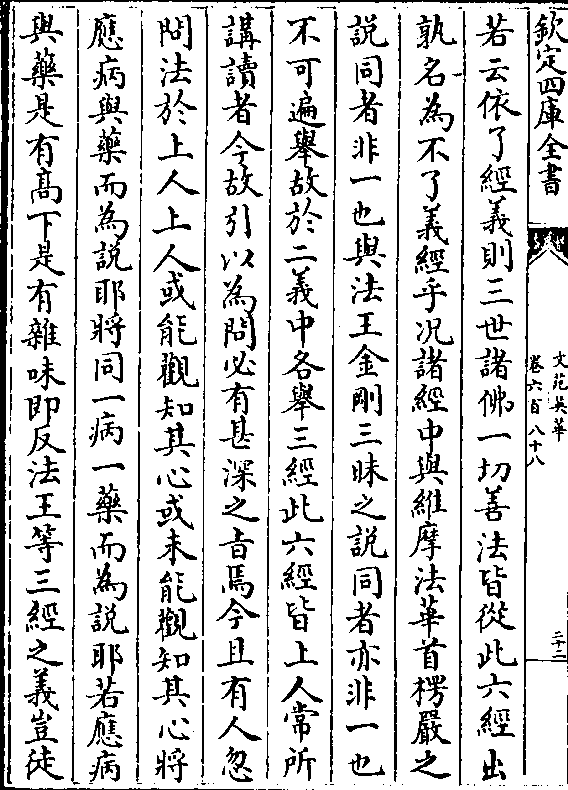 欽定四庫全書
文苑英華
卷六百八十八
二十二
若云依了經義則三世諸佛一切善法皆從此六經出
孰名為不了義經乎况諸經中與維摩法華首楞嚴之
説同者非一也與法王金剛三昧之説同者亦非一也
不可遍舉故於二義中各舉三經此六經皆上人常所
講讀者今故引以為問必有甚深之㫖焉今且有人忽
問法於上人上人或能觀知其心或未能觀知其心將
應病與藥而為說耶將同一病一藥而為説耶若應病
與藥是有髙下是有雜味即反法王等三經之義豈徒